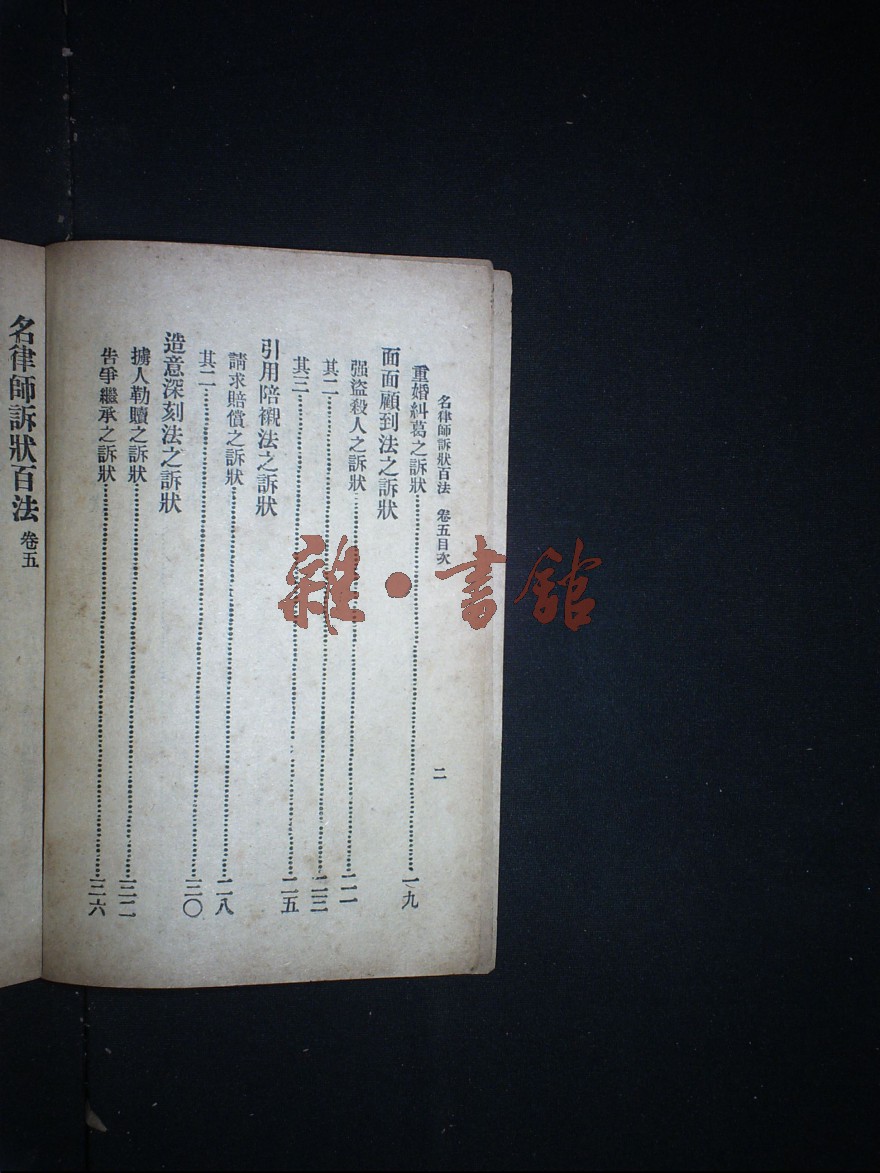 名律師訴狀百法　卷五目次
二
重婚糾葛之訴狀…………一九
面面顧到法之訴狀
强盜殺人之訴狀…………二一
其二…………二三
其三…………二五
引用陪襯法之訴狀
請求賠償之訴狀…………二八
其二…………三〇
造意深刻法之訴狀
擄人勒贖之訴狀…………三二
告爭繼承之訴狀…………三六
名律師訴狀百法　卷五
雜·書館